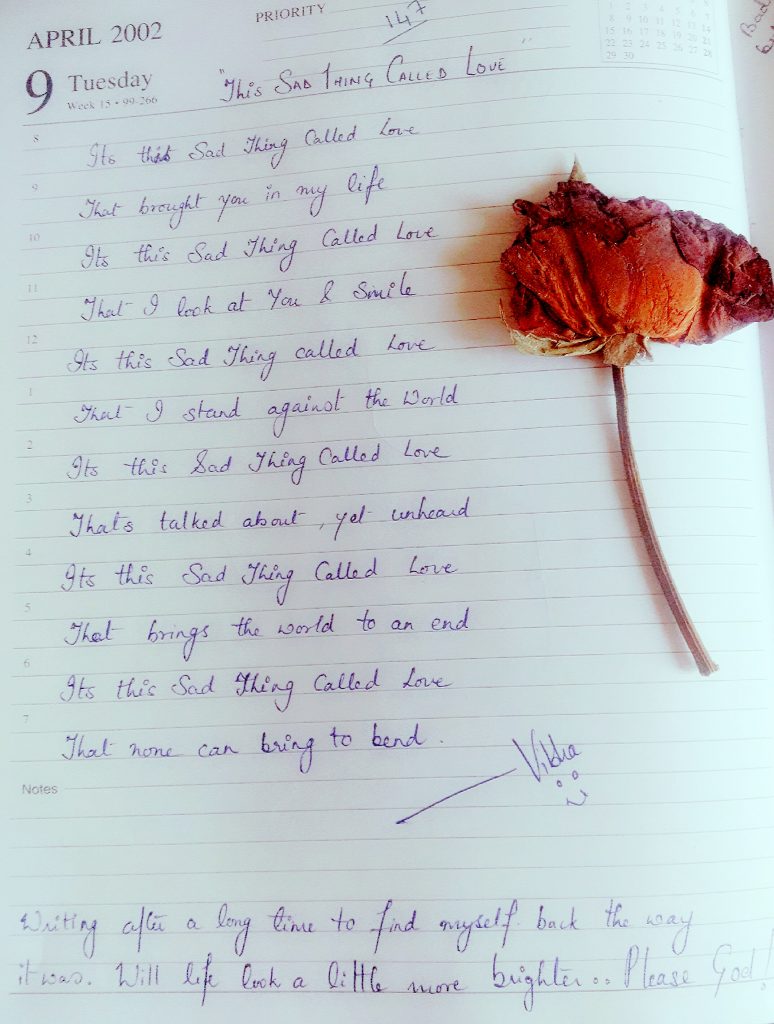 APRIL 2002
PRIORITY
147
9 Tuesday
Week 15 • 99-266
"THIS SAD THING CALLED LOVE"
8
Its this Sad Thing Called Love
9
That brought you in my life
10
Its this Sad Thing Called Love
11
That I look at You & Smile
12
Its this Sad Thing called Love
1
That I stand against the World
2
Its this Sad Thing Called Love
3
Thats talked about, yet unheard
4
Its this Sad Thing Called Love
5
That brings the world to an end
6
Its this Sad Thing Called Love
7
That none can bring to bend.
Vibha
Notes
Writing after a long time to find myself back the way
it was. Will life look a little more brighter.. Please God!